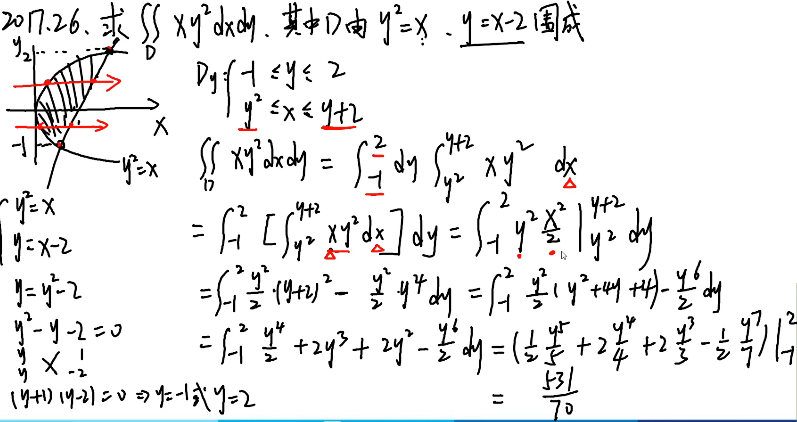 2017.26. 求 ∬_D xy²dxdy. 其中D由 y²=x、y=x-2围成
y 2
-1
x
y²=x
D_y: { -1 ≤ y ≤ 2
y² ≤ x ≤ y+2
∬_D xy²dxdy = ∫_{-1}^{2} dy ∫_{y²}^{y+2} xy² dx
= ∫_{-1}^{2} [∫_{y²}^{y+2} xy²dx] dy = ∫_{-1}^{2} y² x²/2 |_{y²}^{y+2} dy
= ∫_{-1}^{2} y²/2 ·(y+2)² - y²/2 ·y⁴ dy = ∫_{-1}^{2} y²/2 (y²+4y+4) - y⁶/2 dy
= ∫_{-1}^{2} y⁴/2 + 2y³ + 2y² - y⁶/2 dy = (1/2 y⁵/5 + 2 y⁴/4 + 2 y³/3 - 1/2 y⁷/7)|_{-1}^{2}
= 531/70
{ y²=x
y=x-2
y=y²-2
y²-y-2=0
y 1
y -2
(y+1)(y-2)=0 ⇒ y=-1或y=2